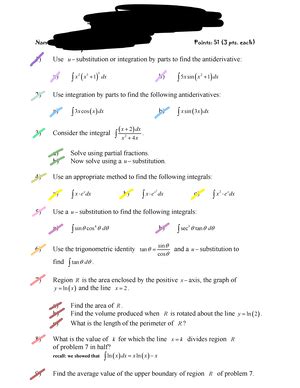 Points: 51 (3 pts. each)
Use u – substitution or integration by parts to find the antiderivative:
Use integration by parts to find the following antiderivatives:
∫3x cos(x)dx ∫x sin(3x)dx
Consider the integral ∫(x+2)dx / x² + 4x
Solve using partial fractions.
Now solve using a u – substitution.
Use an appropriate method to find the following integrals:
Use a u – substitution to find the following integrals:
Use the trigonometric identity tan θ = sin θ / cos θ and a u – substitution to
find ∫tan θ dθ.
Region R is the area enclosed by the positive x – axis, the graph of
y = ln(x) and the line x = 2.
Find the area of R.
Find the volume produced when R is rotated about the line y = ln(2).
What is the length of the perimeter of R?
What is the value of k for which the line x = k divides region R
of problem 7 in half?
recall: we showed that ∫ln(x)dx = x ln(x) – x
Find the average value of the upper boundary of region R of problem 7.